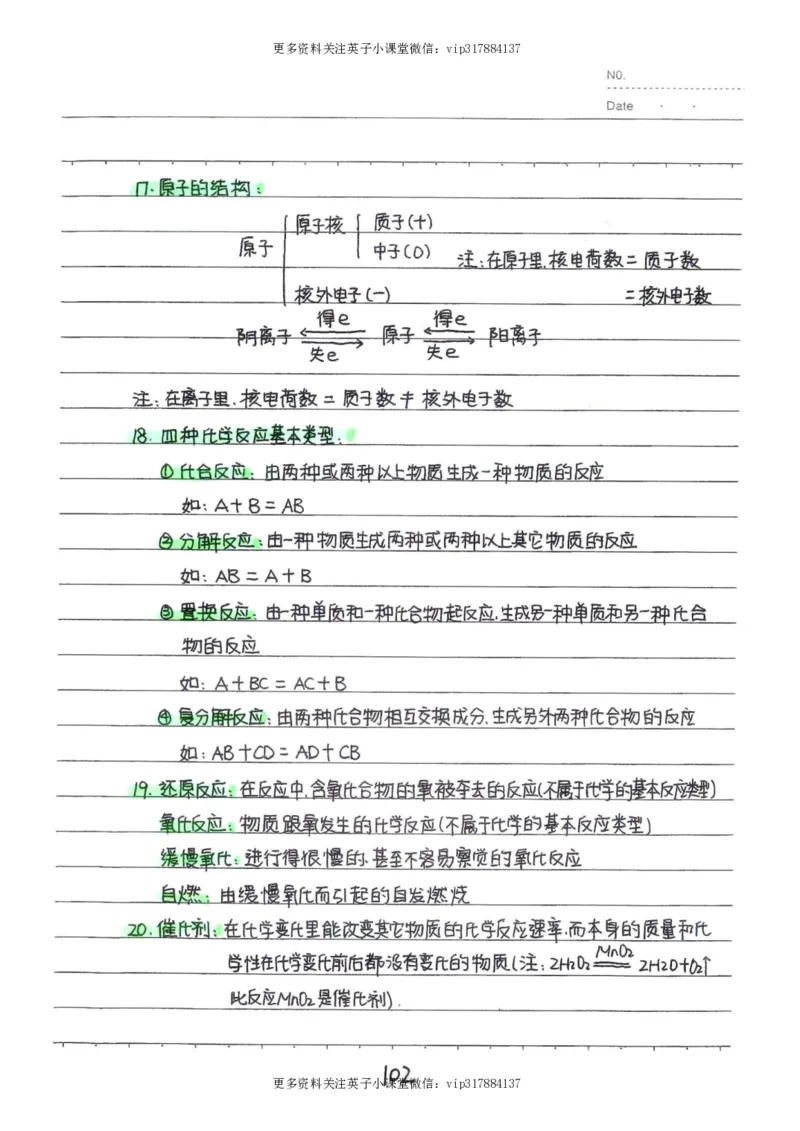 更多资料关注英子小课堂微信：vip317884137
NO.
Date
17.原子的结构：
原子核 质子(+)
原子 中子(0) 注：在原子里，核电荷数=质子数
核外电子(一) =核外电子数
得e 得e
阴离子 ⇌ 原子 ⇌ 阳离子
失e 失e
注：在离子里，核电荷数=质子数≠核外电子数
18.四种化学反应基本类型：
①化合反应：由两种或两种以上物质生成一种物质的反应
如：A+B=AB
②分解反应：由一种物质生成两种或两种以上其它物质的反应
如：AB=A+B
③置换反应：由一种单质和一种化合物起反应，生成另一种单质和另一种化合
物的反应
如：A+BC=AC+B
④复分解反应：由两种化合物相互交换成分，生成另外两种化合物的反应
如：AB+CD=AD+CB
19.还原反应：在反应中，含氧化合物的氧被夺去的反应(不属于化学的基本反应类型)
氧化反应：物质跟氧发生的化学反应(不属于化学的基本反应类型)
缓慢氧化：进行得很慢的，甚至不容易察觉的氧化反应
自燃：由缓慢氧化而引起的自发燃烧
20.催化剂：在化学变化里能改变其它物质的化学反应速率，而本身的质量和化
学性在化学变化前后都没有变化的物质(注：2H2O2 MnO2== 2H2O+O2↑
此反应MnO2是催化剂).
102
更多资料关注英子小课堂微信：vip317884137